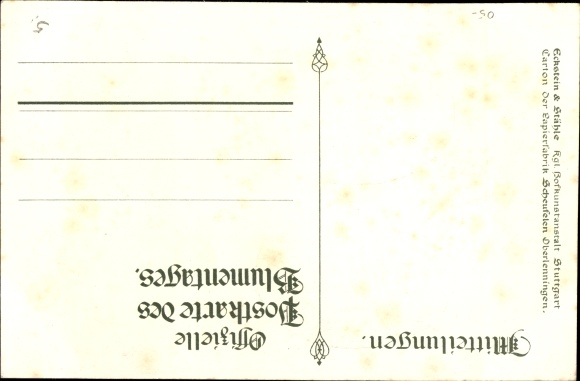 Offizielle
Postkarte des
Blumentages.
Mitteilungen.
Eckstein & Stähle Kgl. Hofkunstanstalt Stuttgart
Carton der Papierfabrik Scheufelen Oberlenningen.
-50
5.